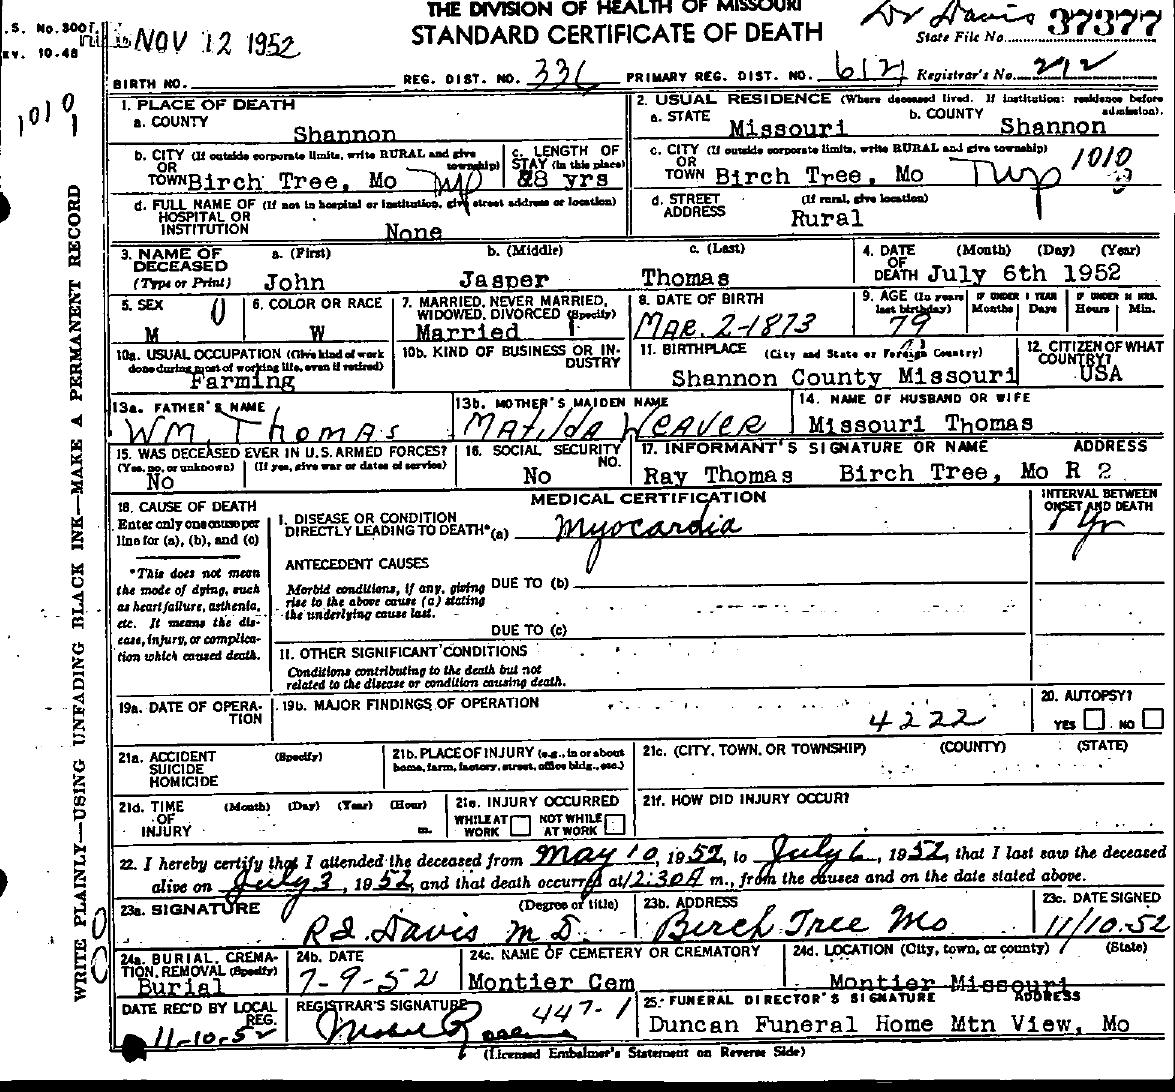 THE DIVISION OF HEALTH OF MISSOURI
STANDARD CERTIFICATE OF DEATH
Dr Davis
State File No. 37377
S. No. 300
EV. 10-48
NOV 12 1952
BIRTH NO.
REG. DIST. NO. 336
PRIMARY REG. DIST. NO. 6121
Registrar's No. 292
1010
1
WRITE PLAINLY—USING UNFADING BLACK INK—MAKE A PERMANENT RECORD
1. PLACE OF DEATH
a. COUNTY
Shannon
2. USUAL RESIDENCE (Where deceased lived. If institution: residence before admission).
a. STATE Missouri
b. COUNTY Shannon
b. CITY (If outside corporate limits, write RURAL and give township)
OR
TOWN Birch Tree, Mo Twp
c. LENGTH OF STAY (in this place)
28 yrs
c. CITY (If outside corporate limits, write RURAL and give township)
OR
TOWN Birch Tree, Mo Twp 1010
d. FULL NAME OF (If not in hospital or institution, give street address or location)
HOSPITAL OR
INSTITUTION None
d. STREET ADDRESS (If rural, give location)
Rural
3. NAME OF DECEASED
(Type or Print)
a. (First) John
b. (Middle) Jasper
c. (Last) Thomas
4. DATE OF DEATH (Month) (Day) (Year)
July 6th 1952
5. SEX
M
0
6. COLOR OR RACE
W
7. MARRIED, NEVER MARRIED, WIDOWED, DIVORCED (Specify)
Married 1
8. DATE OF BIRTH
MAR. 2-1873
9. AGE (In years last birthday)
79
IF UNDER 1 YEAR
Months Days
IF UNDER 24 HRS.
Hours Min.
10a. USUAL OCCUPATION (Give kind of work done during most of working life, even if retired)
Farming
10b. KIND OF BUSINESS OR INDUSTRY
11. BIRTHPLACE (City and State or Foreign Country)
Shannon County Missouri
12. CITIZEN OF WHAT COUNTRY?
USA
13a. FATHER'S NAME
WM. Thomas
13b. MOTHER'S MAIDEN NAME
Matilda Weaver
14. NAME OF HUSBAND OR WIFE
Missouri Thomas
15. WAS DECEASED EVER IN U.S. ARMED FORCES?
(Yes, no, or unknown) (If yes, give war or dates of service)
No
16. SOCIAL SECURITY NO.
No
17. INFORMANT'S SIGNATURE OR NAME ADDRESS
Ray Thomas Birch Tree, Mo R 2
18. CAUSE OF DEATH
Enter only one cause per line for (a), (b), and (c)
*This does not mean the mode of dying, such as heart failure, asthenia, etc. It means the disease, injury, or complication which caused death.
MEDICAL CERTIFICATION
INTERVAL BETWEEN ONSET AND DEATH
I. DISEASE OR CONDITION
DIRECTLY LEADING TO DEATH* (a) Myocardia
1 yr
ANTECEDENT CAUSES
Morbid conditions, if any, giving rise to the above cause (a) stating the underlying cause last.
DUE TO (b)
DUE TO (c)
II. OTHER SIGNIFICANT CONDITIONS
Conditions contributing to the death but not related to the disease or condition causing death.
19a. DATE OF OPERATION
19b. MAJOR FINDINGS OF OPERATION
4222
20. AUTOPSY?
YES NO
21a. ACCIDENT SUICIDE HOMICIDE (Specify)
21b. PLACE OF INJURY (e.g., in or about home, farm, factory, street, office bldg., etc.)
21c. (CITY, TOWN, OR TOWNSHIP) (COUNTY) (STATE)
21d. TIME OF INJURY (Month) (Day) (Year) (Hour) m.
21e. INJURY OCCURRED
WHILE AT WORK NOT WHILE AT WORK
21f. HOW DID INJURY OCCUR?
22. I hereby certify that I attended the deceased from May 10, 1952, to July 6, 1952, that I last saw the deceased
alive on July 3, 1952, and that death occurred at 12:30A m., from the causes and on the date stated above.
23a. SIGNATURE (Degree or title)
R I Davis M D.
23b. ADDRESS
Birch Tree Mo
23c. DATE SIGNED
11/10-52
24a. BURIAL, CREMATION, REMOVAL (Specify)
Burial
24b. DATE
7-9-52
24c. NAME OF CEMETERY OR CREMATORY
Montier Cem
24d. LOCATION (City, town, or county) (State)
Montier Missouri
DATE REC'D BY LOCAL REG.
11-10-52
REGISTRAR'S SIGNATURE
447-1
25. FUNERAL DIRECTOR'S SIGNATURE ADDRESS
Duncan Funeral Home Mtn View, Mo
(Licensed Embalmer's Statement on Reverse Side)